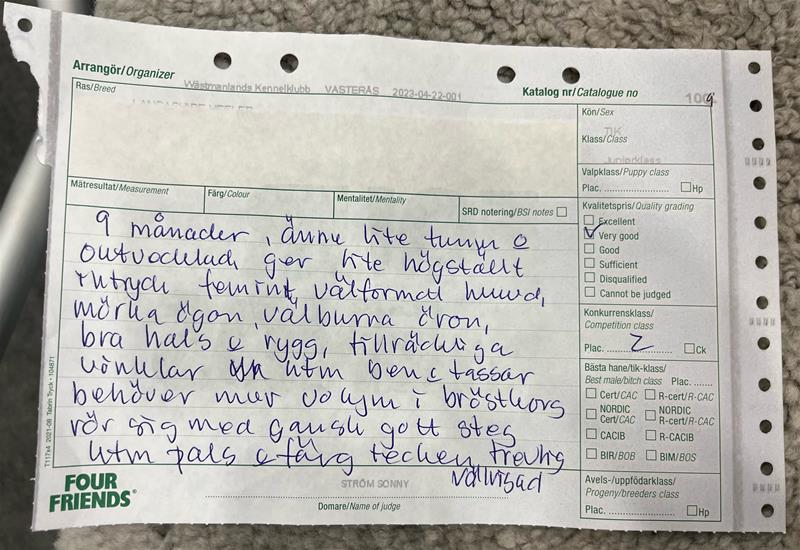 Arrangör/Organizer
Wästmanlands Kennelklubb VÄSTERÅS 2023-04-22-001
Katalog nr/Catalogue no 1009
Ras/Breed
Kön/Sex
TIK
Klass/Class
Juniorklass
Valpklass/Puppy class
Plac. ☐Hp
Mätresultat/Measurement
Färg/Colour
Mentalitet/Mentality
SRD notering/BSI notes ☐
Kvalitetspris/Quality grading
☐ Excellent
☑ Very good
☐ Good
☐ Sufficient
☐ Disqualified
☐ Cannot be judged
9 månader, ännu lite tunn o
outvecklad ger lite högställt
intryck feminint, välformat huvud,
mörka ögon, välburna öron,
bra hals o rygg, tillräckliga
vinklar utm ben o tassar
behöver mer volym i bröstkorg
rör sig med ganska gott steg
utm päls o färg tecken trevlig
välvisad
Konkurrensklass/
Competition class
Plac. 2 ☐Ck
Bästa hane/tik-klass/
Best male/bitch class Plac.
☐ Cert/CAC ☐ R-cert/R-CAC
☐ NORDIC Cert/CAC ☐ NORDIC R-cert/R-CAC
☐ CACIB ☐ R-CACIB
☐ BIR/BOB ☐ BIM/BOS
Avels-/uppfödarklass/
Progeny/breeders class
Plac. ☐Hp
FOUR
FRIENDS®
STRÖM SONNY
Domare/Name of judge
T117x4 2021-08 Tabrin Tryck • 104871